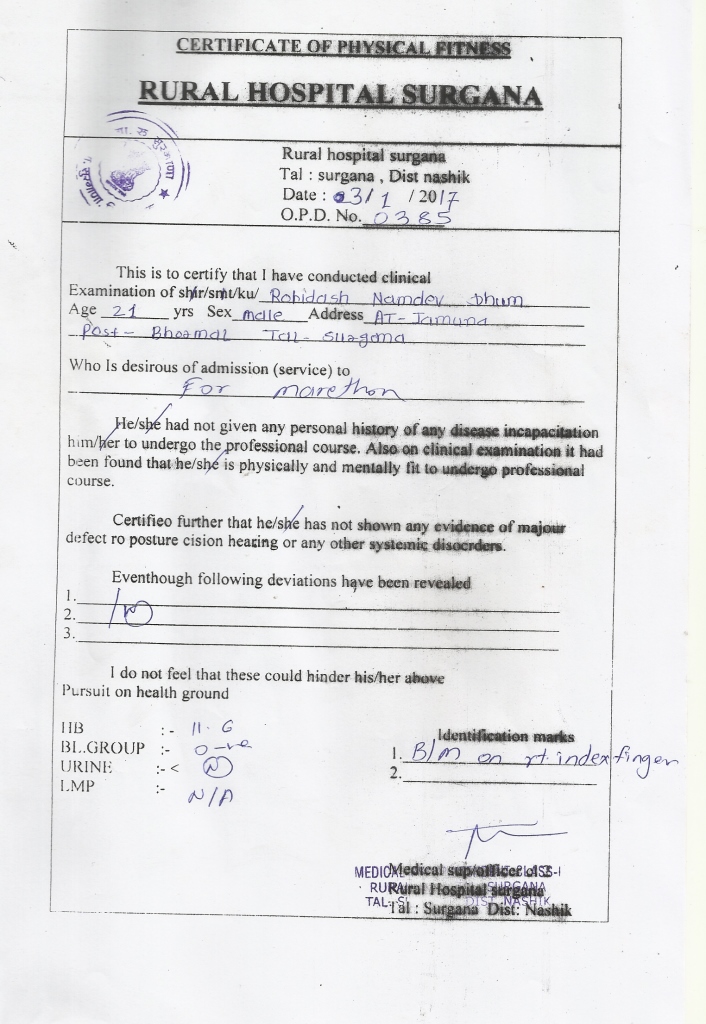 CERTIFICATE OF PHYSICAL FITNESS
RURAL HOSPITAL SURGANA
Rural hospital surgana
Tal : surgana , Dist nashik
Date : 03/1 / 2017
O.P.D. No. 0385
This is to certify that I have conducted clinical
Examination of shir/smt/ku/ Rohidash Namdev Dhum
Age 21 yrs Sex male Address AT-Jamuna
Post- Tal- surgana
Who Is desirous of admission (service) to
For marethon
He/she had not given any personal history of any disease incapacitation
him/her to undergo the professional course. Also on clinical examination it had
been found that he/she is physically and mentally fit to undergo professional
course.
Certifieo further that he/she has not shown any evidence of majour
defect ro posture cision hearing or any other systemic disocrders.
Eventhough following deviations have been revealed
1.
2.
3.
I do not feel that these could hinder his/her above
Pursuit on health ground
HB :- 11.6
BL.GROUP :- O-ve
URINE :-< N
LMP :- N/A
Identification marks
1. B/M on rt. index finger
2.
Medical sup/officer cl 2
Rural Hospital surgana
Tal : Surgana Dist: Nashik